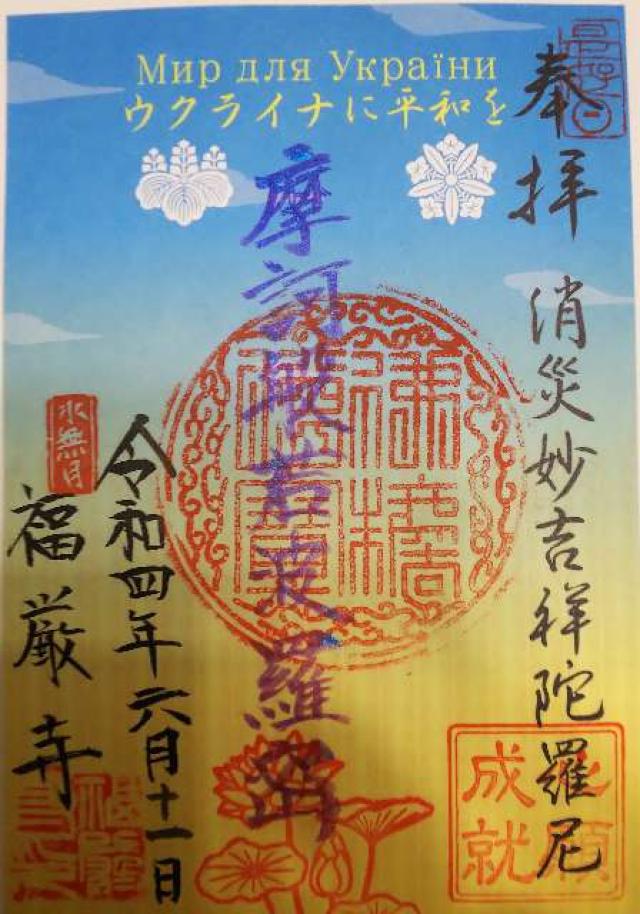 Мир для України
ウクライナに平和を
奉拝
消災妙吉祥陀羅尼
心願
成就
摩訶般若波羅蜜
令和四年六月十一日
水無月
福厳寺